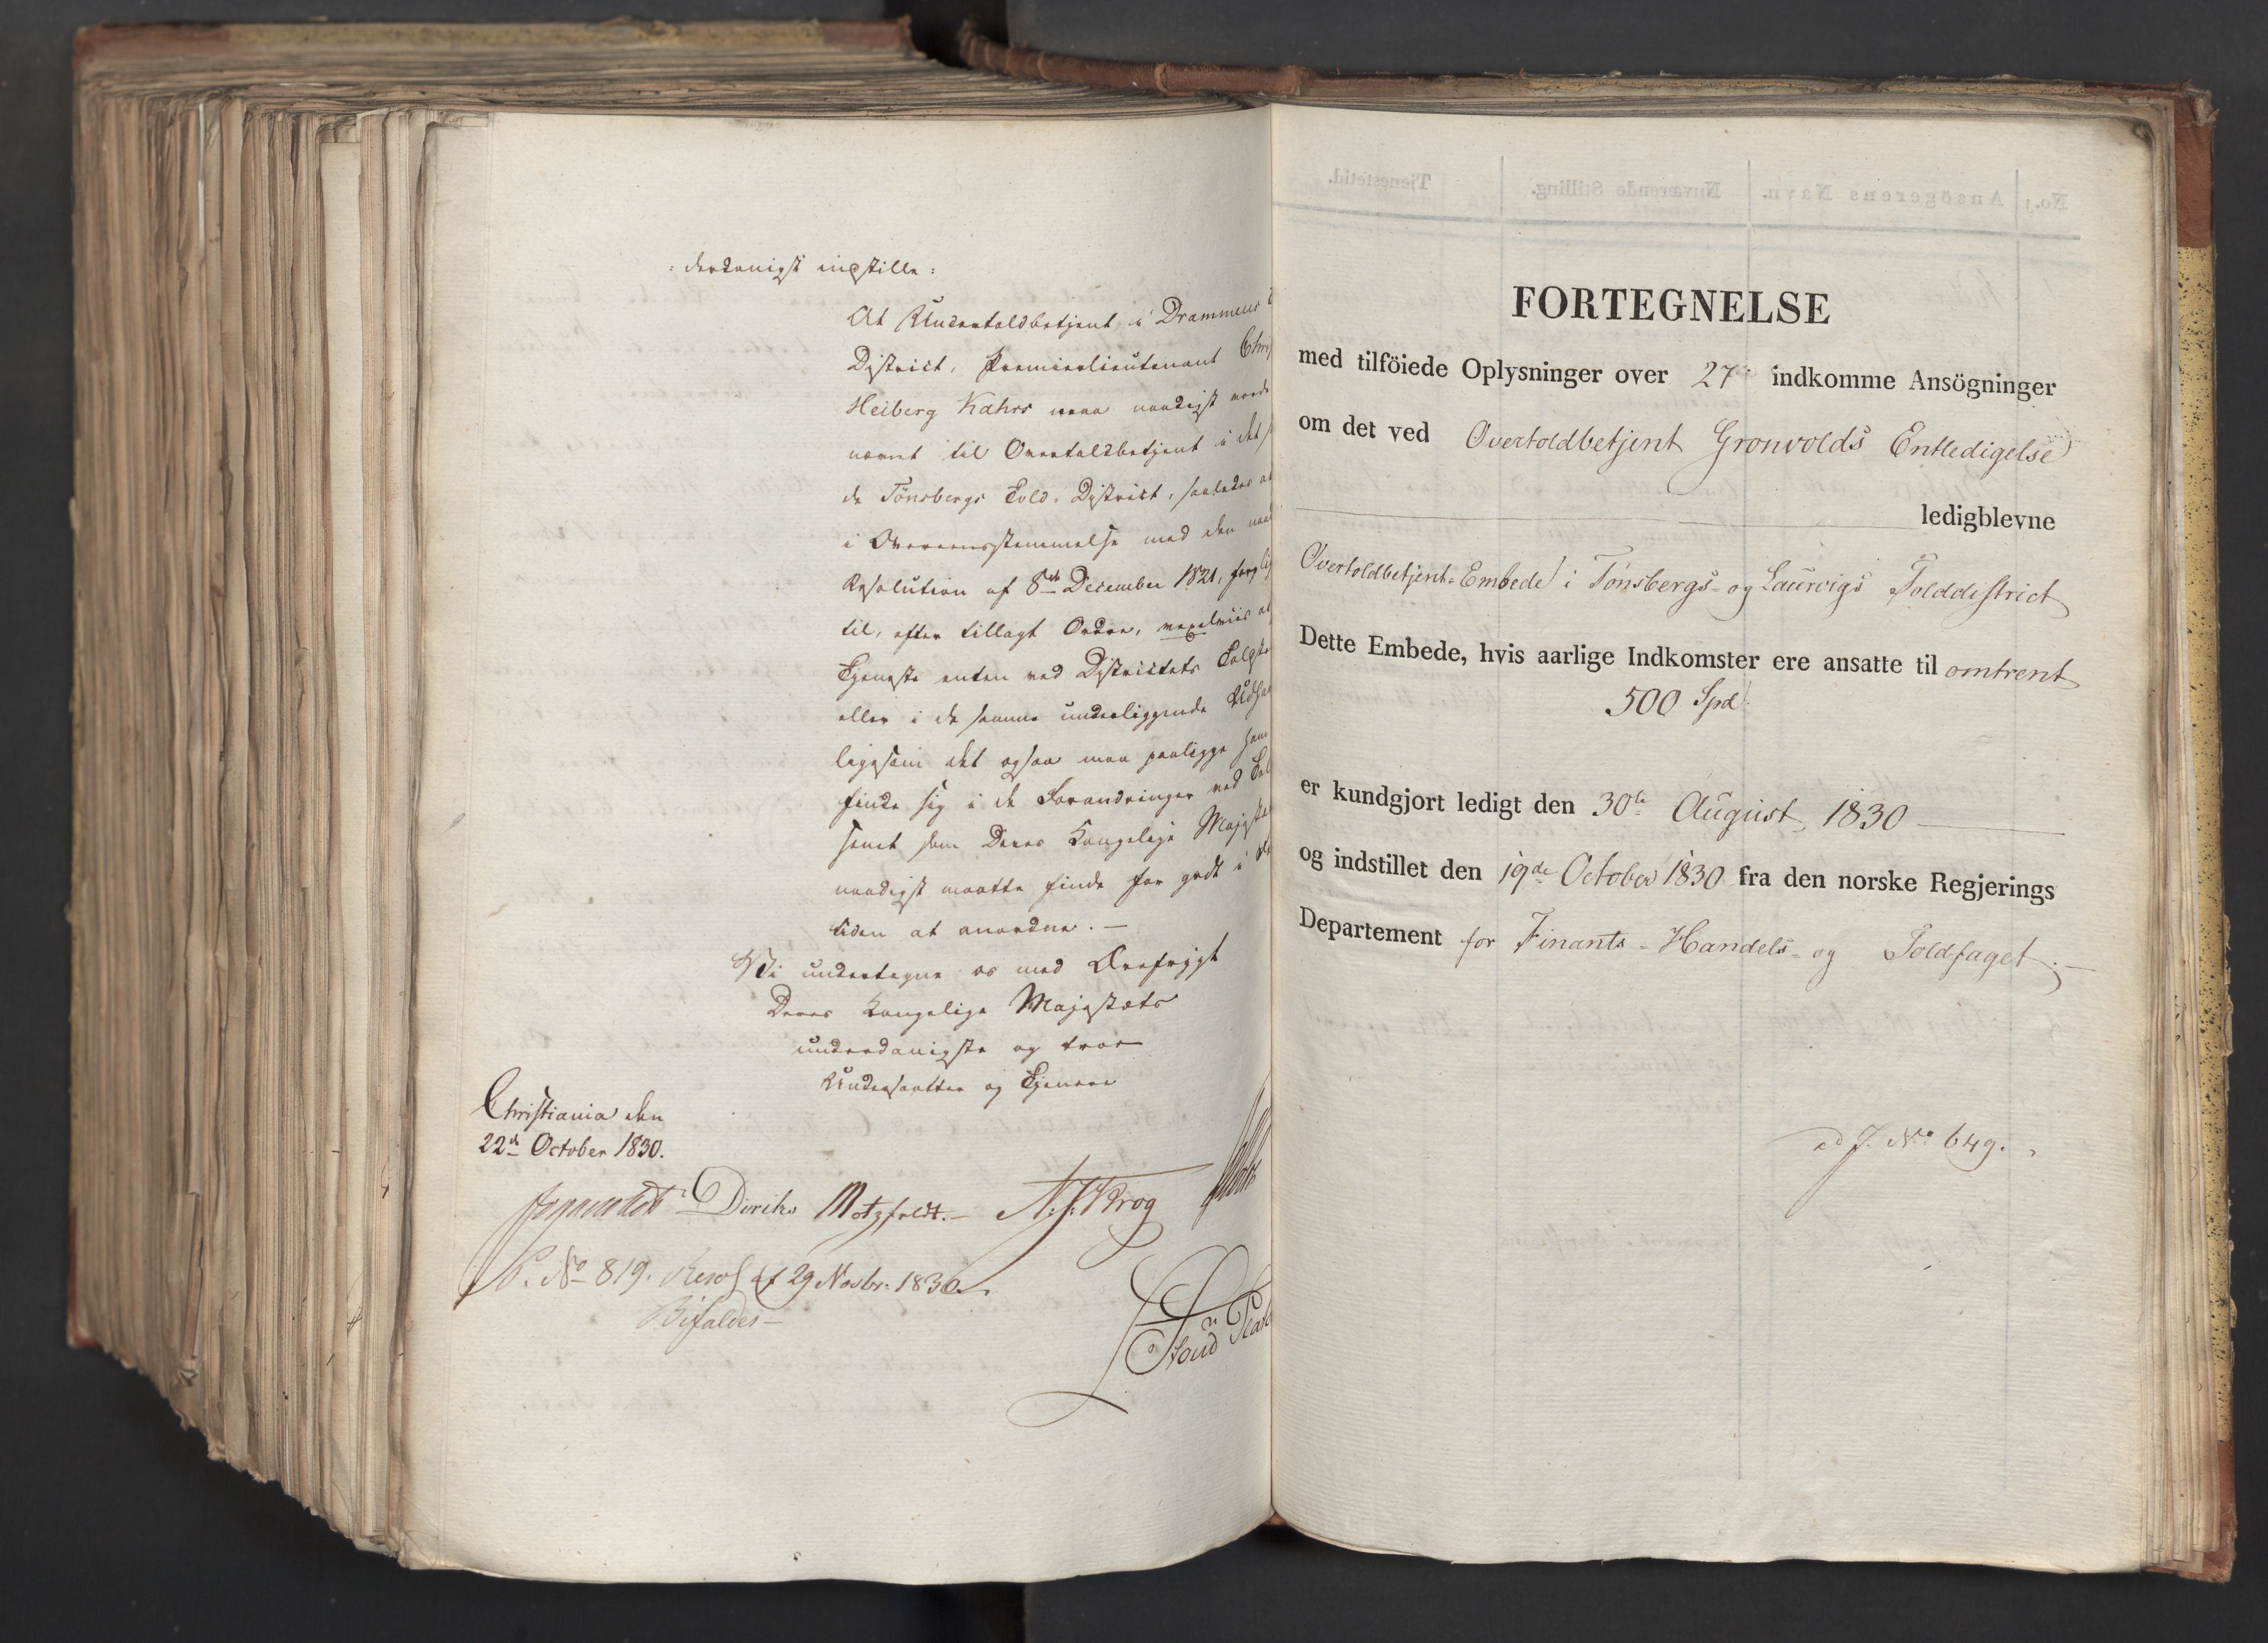 : derdanigst indstille:
At Undertoldbetjent i Drammens
District, Premierlieutenant
Heiberg Kahrs maa naadigst
nævnt til Overtoldbetjent i det
de Tönsbergs Told-District, saaledes at
i Overeensstemmelse med den
Resolution af 8de December 1821,
til, efter tillagt Ordre, vexelviis at
Tjeneste enten ved Districtets
eller i de samme underliggende
ligesom det ogsaa maa paaligge ham
finde sig i de Forandringer ved
senet som Deres Kongelige
naadigst maatte finde for godt i
tiden at anordne. —
Vi undertegne os med Ærefrygt
Deres Kongelige Majestæts
underdanigste og troe
Undersaatter og Tjenere
Christiania den
22de October 1830.
Diriks Motzfeldt. — N. J. Krog
P. No 819. Resol. af 29 Novbr. 1830.
Bifaldes —
No. Ansögerens Navn. Nuværende Stilling. Tjenestetid.
FORTEGNELSE
med tilföiede Oplysninger over 27 indkomme Ansögninger
om det ved Overtoldbetjent Gronvolds Entledigelse
ledigblevne
Overtoldbetjent-Embede i Tönsbergs- og Laurvigs Tolddistrict
Dette Embede, hvis aarlige Indkomster ere ansatte til omtrent
500 Spd.
er kundgjort ledigt den 30te August 1830
og indstillet den 19de October 1830 fra den norske Regjerings
Departement for Finants- Handels- og Toldfaget. —
ad J. No 649.